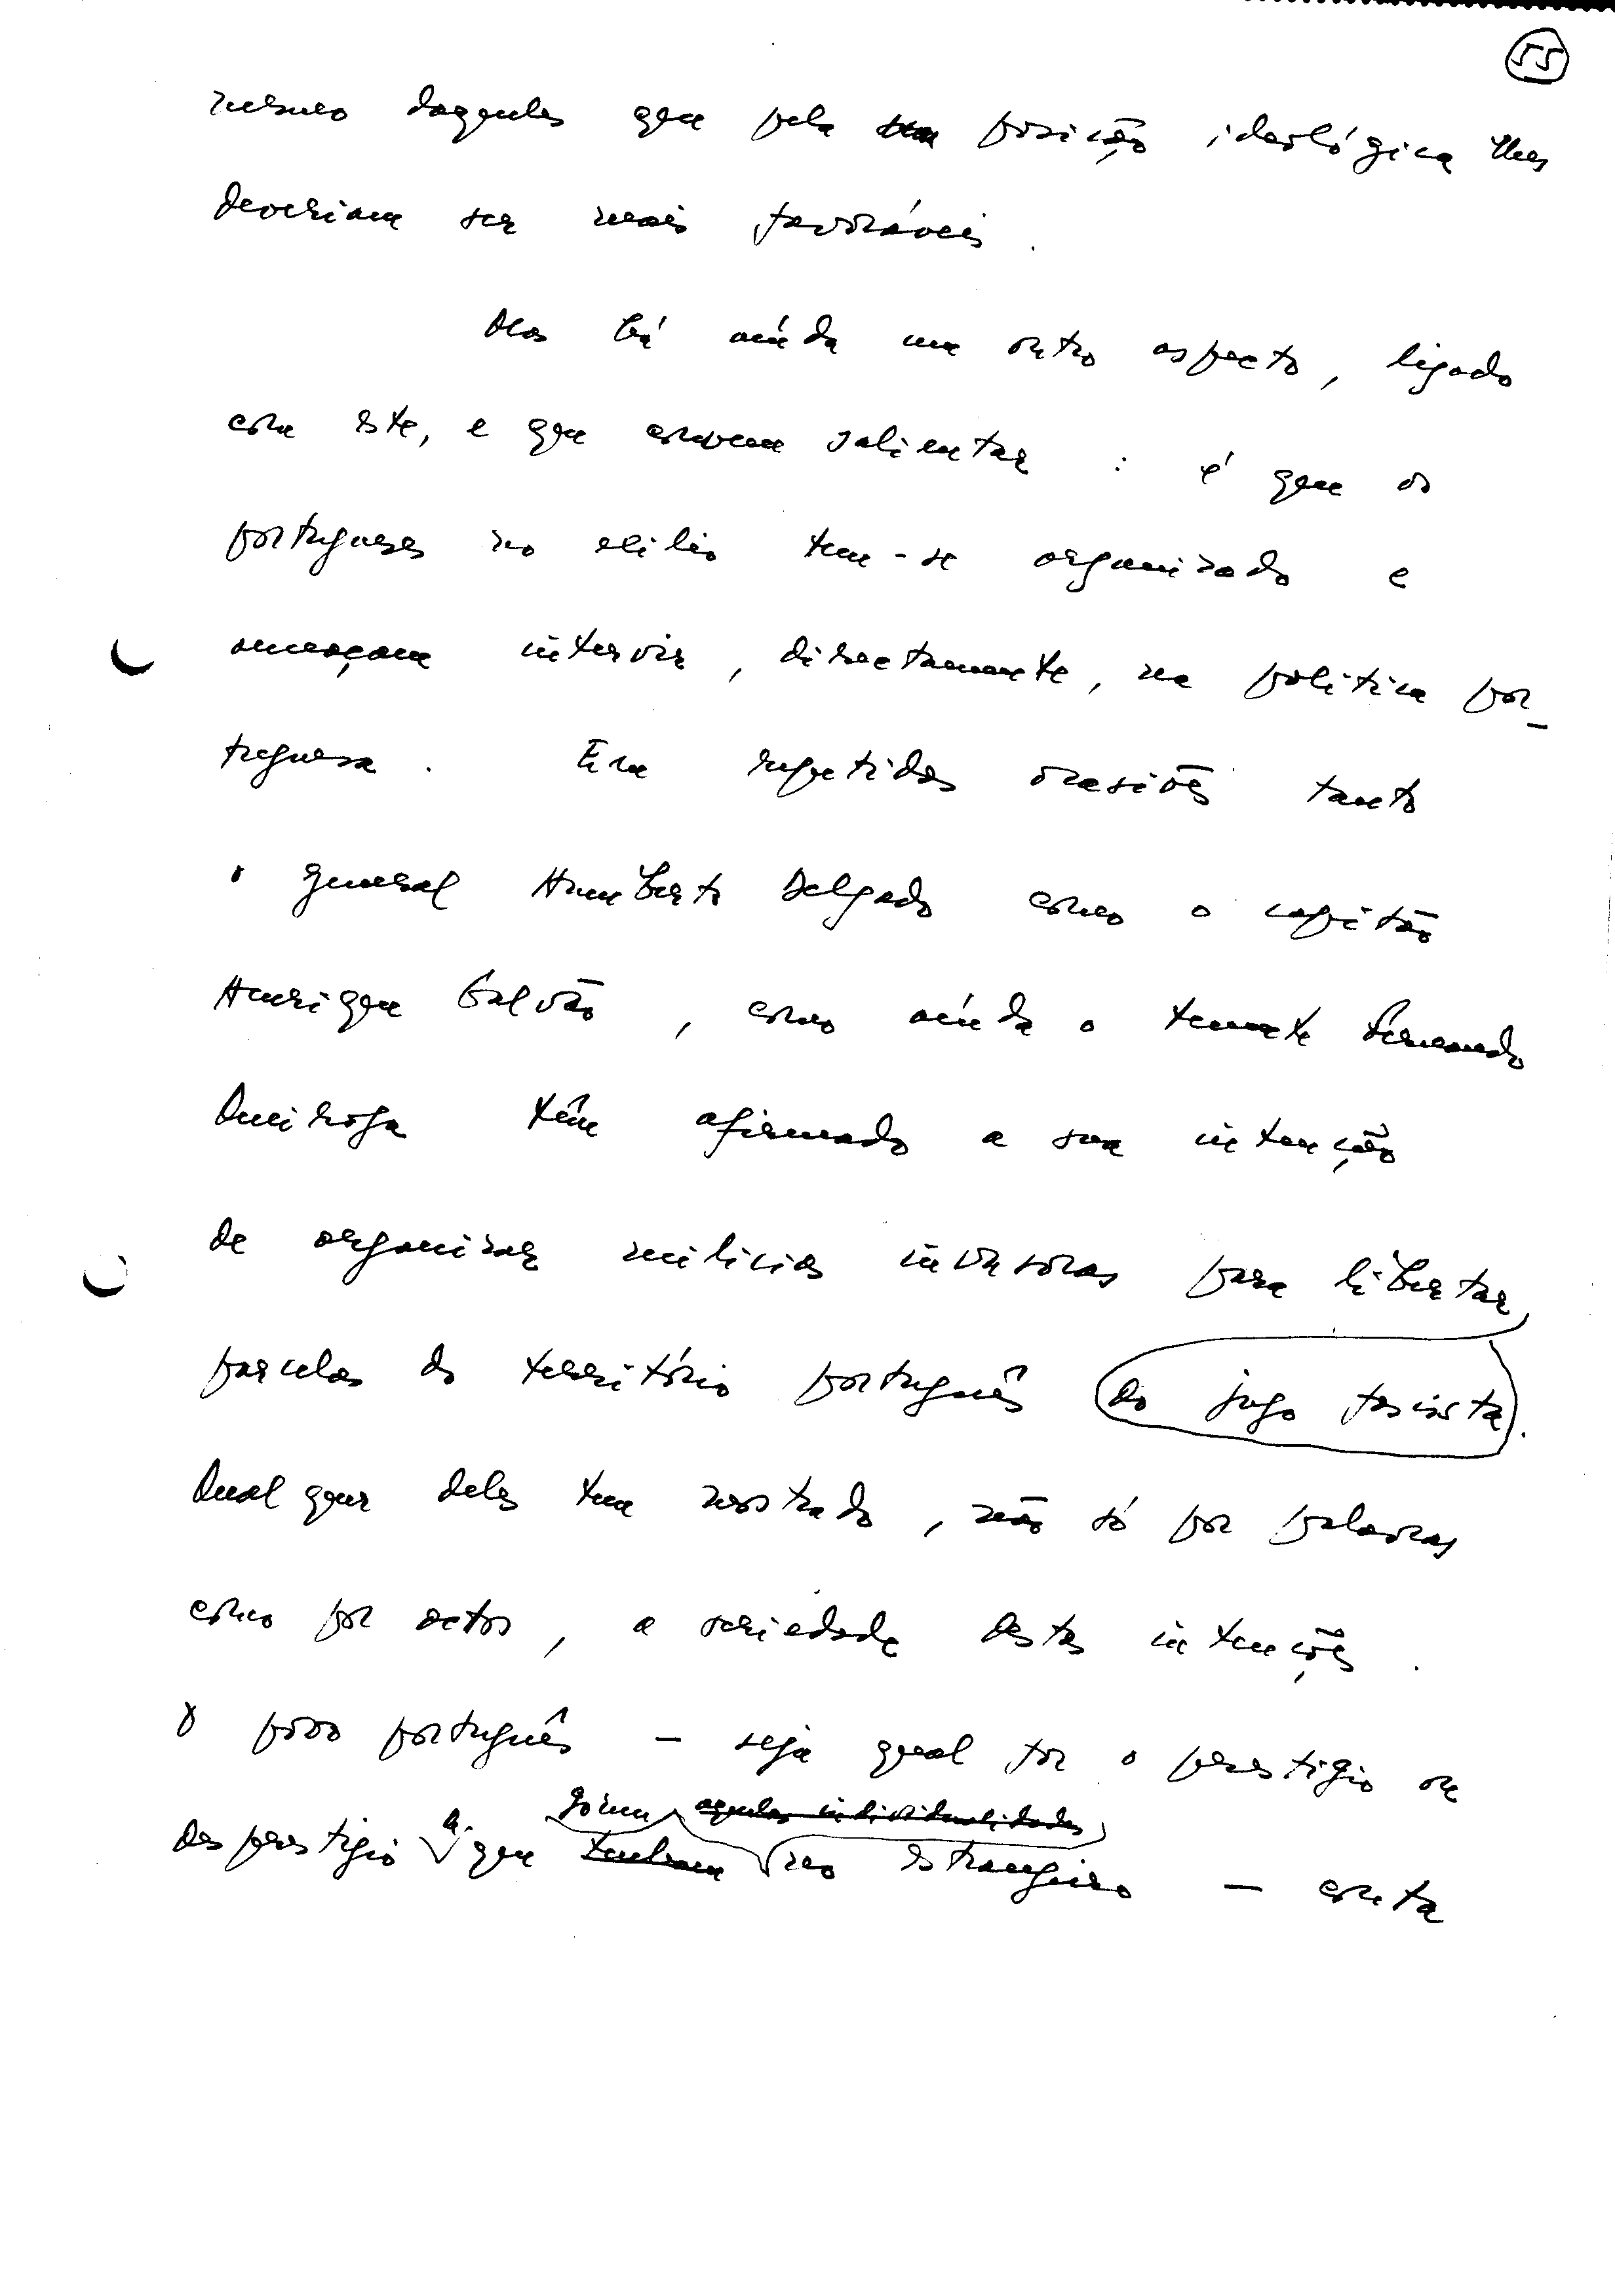 55
mesmo daqueles que pela sua posição ideológica lhes
deveriam ser mais favoráveis.
Mas há ainda um outro aspecto, ligado
com êste, e que convem salientar : é que os
portugueses no exílio tem-se organizado e
ameaçam intervir, directamente, na política por-
tuguesa. Em repetidas ocasiões tanto
o general Humberto Delgado como o capitão
Henrique Galvão, como ainda o tenente Fernando
Queiroga têm afirmado a sua intenção
de organizar milícias invasoras para libertar
parcelas do território português do jugo fascista.
Qualquer deles tem mostrado, não só por palavras
como por actos, a seriedade destas intenções.
O povo português – seja qual for o prestígio ou
gozem aquelas individualidades
desprestígio de que tenham no estrangeiro – conta